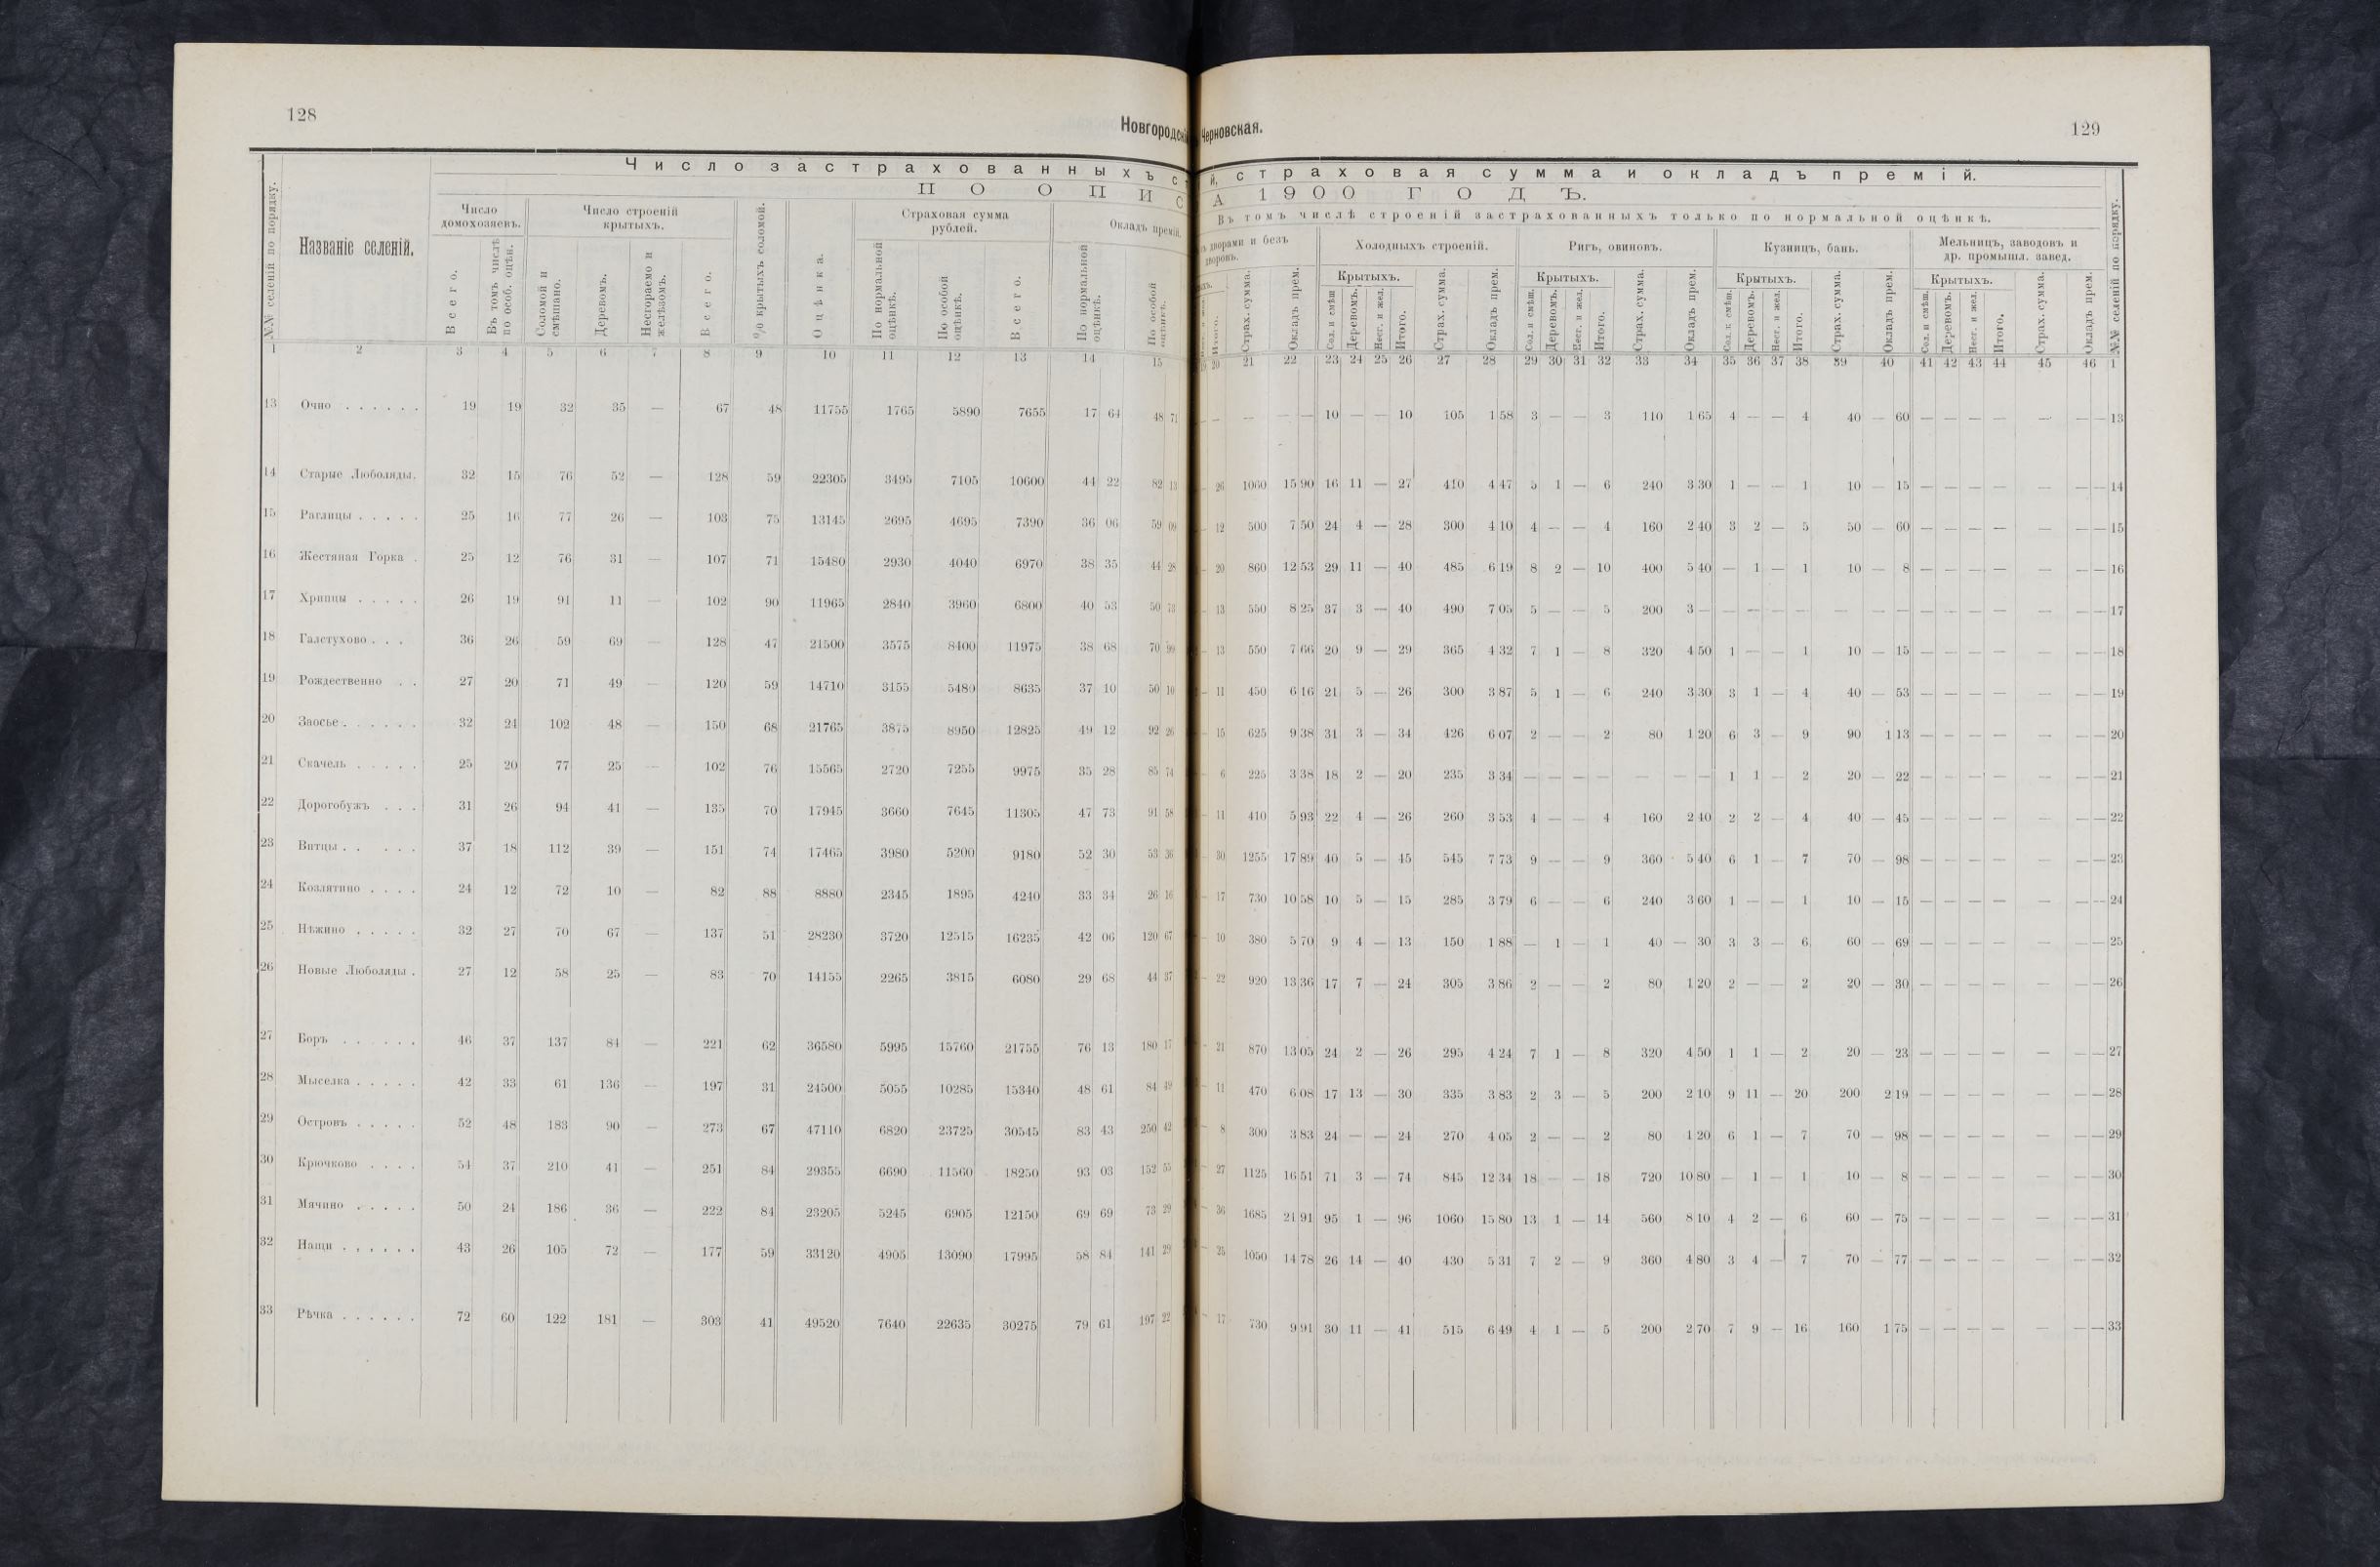 128
Новгородскі
Число застрахованныхъ ст
ПО ОПИС
№№ селеній по порядку.
Названіе селеній.
Число домохозяевъ.
Всего.
Въ томъ числѣ по особ. оцѣн.
Число строеній крытыхъ.
Соломой и смѣшано.
Деревомъ.
Несгораемо и желѣзомъ.
Всего.
% крытыхъ соломой.
Оцѣнка.
Страховая сумма рублей.
По нормальной оцѣнкѣ.
По особой оцѣнкѣ.
Всего.
Окладъ премій.
По нормальной оцѣнкѣ.
По особой оцѣнкѣ.
1 2 3 4 5 6 7 8 9 10 11 12 13 14 15
13 Очно . . . . . . 19 19 32 35 — 67 48 11755 1765 5890 7655 17 64 48 71
14 Старые Люболяды. 32 15 76 52 — 128 59 22305 3495 7105 10600 44 22 82 13
15 Раглицы . . . . . 25 16 77 26 — 103 75 13145 2695 4695 7390 36 06 59 09
16 Жестяная Горка . 25 12 76 31 — 107 71 15480 2930 4040 6970 38 35 44 28
17 Хрипцы . . . . . 26 19 91 11 — 102 90 11965 2840 3960 6800 40 53 50 73
18 Галстухово . . . 36 26 59 69 — 128 47 21500 3575 8400 11975 38 68 70 99
19 Рождественно . . 27 20 71 49 — 120 59 14710 3155 5480 8635 37 10 50 10
20 Заосье . . . . . . 32 24 102 48 — 150 68 21765 3875 8950 12825 49 12 92 26
21 Скачель . . . . . 25 20 77 25 — 102 76 15565 2720 7255 9975 35 28 85 74
22 Дорогобужъ . . . 31 26 94 41 — 135 70 17945 3660 7645 11305 47 73 91 58
23 Витцы . . . . . 37 18 112 39 — 151 74 17465 3980 5200 9180 52 30 53 36
24 Козлятино . . . . 24 12 72 10 — 82 88 8880 2345 1895 4240 33 34 26 16
25 Нѣжино . . . . . 32 27 70 67 — 137 51 28230 3720 12515 16235 42 06 120 67
26 Новые Люболяды . 27 12 58 25 — 83 70 14155 2265 3815 6080 29 68 44 37
27 Боръ . . . . . . 46 37 137 84 — 221 62 36580 5995 15760 21755 76 13 180 17
28 Мыселка . . . . . 42 33 61 136 — 197 31 24500 5055 10285 15340 48 61 84 49
29 Островъ . . . . . 52 48 183 90 — 273 67 47110 6820 23725 30545 83 43 250 42
30 Крючково . . . . 54 37 210 41 — 251 84 29355 6690 11560 18250 93 03 152 55
31 Мячино . . . . . 50 24 186 36 — 222 84 23205 5245 6905 12150 69 69 73 29
32 Нащи . . . . . . 43 26 105 72 — 177 59 33120 4905 13090 17995 58 84 141 29
33 Рѣчка . . . . . . 72 60 122 181 — 303 41 49520 7640 22635 30275 79 61 197 22
Черновская.
129
й, страховая сумма и окладъ премій.
А 1900 ГОДЪ.
Въ томъ числѣ строеній застрахованныхъ только по нормальной оцѣнкѣ.
дворами и безъ дворовъ.
Итого.
Страх. сумма.
Окладъ прем.
Холодныхъ строеній.
Крытыхъ.
Сол. и смѣш
Деревомъ.
Несг. и жел.
Итого.
Страх. сумма.
Окладъ прем.
Ригъ, овиновъ.
Крытыхъ.
Сол. и смѣш.
Деревомъ.
Несг. и жел.
Итого.
Страх. сумма.
Окладъ прем.
Кузницъ, бань.
Крытыхъ.
Сол. и смѣш.
Деревомъ.
Несг. и жел.
Итого.
Страх. сумма.
Окладъ прем.
Мельницъ, заводовъ и др. промышл. завед.
Крытыхъ.
Сол. и смѣш.
Деревомъ.
Несг. и жел.
Итого.
Страх. сумма.
Окладъ прем.
№№ селеній по порядку.
20 21 22 23 24 25 26 27 28 29 30 31 32 33 34 35 36 37 38 39 40 41 42 43 44 45 46 1
— — — — 10 — — 10 105 1 58 3 — — 3 110 1 65 4 — — 4 40 — 60 — — — — — — — 13
26 1060 15 90 16 11 — 27 410 4 47 5 1 — 6 240 3 30 1 — — 1 10 — 15 — — — — — — — 14
12 500 7 50 24 4 — 28 300 4 10 4 — — 4 160 2 40 3 2 — 5 50 — 60 — — — — — — — 15
20 860 12 53 29 11 — 40 485 6 19 8 2 — 10 400 5 40 — 1 — 1 10 — 8 — — — — — — — 16
13 550 8 25 37 3 — 40 490 7 05 5 — — 5 200 3 — — — — — — — — — — — — — — — 17
13 550 7 66 20 9 — 29 365 4 32 7 1 — 8 320 4 50 1 — — 1 10 — 15 — — — — — — — 18
11 450 6 16 21 5 — 26 300 3 87 5 1 — 6 240 3 30 3 1 — 4 40 — 53 — — — — — — — 19
15 625 9 38 31 3 — 34 426 6 07 2 — — 2 80 1 20 6 3 — 9 90 1 13 — — — — — — — 20
6 225 3 38 18 2 — 20 235 3 34 — — — — — — — 1 1 — 2 20 — 22 — — — — — — — 21
11 410 5 93 22 4 — 26 260 3 53 4 — — 4 160 2 40 2 2 — 4 40 — 45 — — — — — — — 22
30 1255 17 89 40 5 — 45 545 7 73 9 — — 9 360 5 40 6 1 — 7 70 — 98 — — — — — — — 23
17 730 10 58 10 5 — 15 285 3 79 6 — — 6 240 3 60 1 — — 1 10 — 15 — — — — — — — 24
10 380 5 70 9 4 — 13 150 1 88 — 1 — 1 40 — 30 3 3 — 6 60 — 69 — — — — — — — 25
22 920 13 36 17 7 — 24 305 3 86 2 — — 2 80 1 20 2 — — 2 20 — 30 — — — — — — — 26
21 870 13 05 24 2 — 26 295 4 24 7 1 — 8 320 4 50 1 1 — 2 20 — 23 — — — — — — — 27
11 470 6 08 17 13 — 30 335 3 83 2 3 — 5 200 2 10 9 11 — 20 200 2 19 — — — — — — — 28
8 300 3 83 24 — — 24 270 4 05 2 — — 2 80 1 20 6 1 — 7 70 — 98 — — — — — — — 29
27 1125 16 51 71 3 — 74 845 12 34 18 — — 18 720 10 80 — 1 — 1 10 — 8 — — — — — — — 30
36 1685 21 91 95 1 — 96 1060 15 80 13 1 — 14 560 8 10 4 2 — 6 60 — 75 — — — — — — — 31
25 1050 14 78 26 14 — 40 430 5 31 7 2 — 9 360 4 80 3 4 — 7 70 — 77 — — — — — — — 32
17 730 9 91 30 11 — 41 515 6 49 4 1 — 5 200 2 70 7 9 — 16 160 1 75 — — — — — — — 33